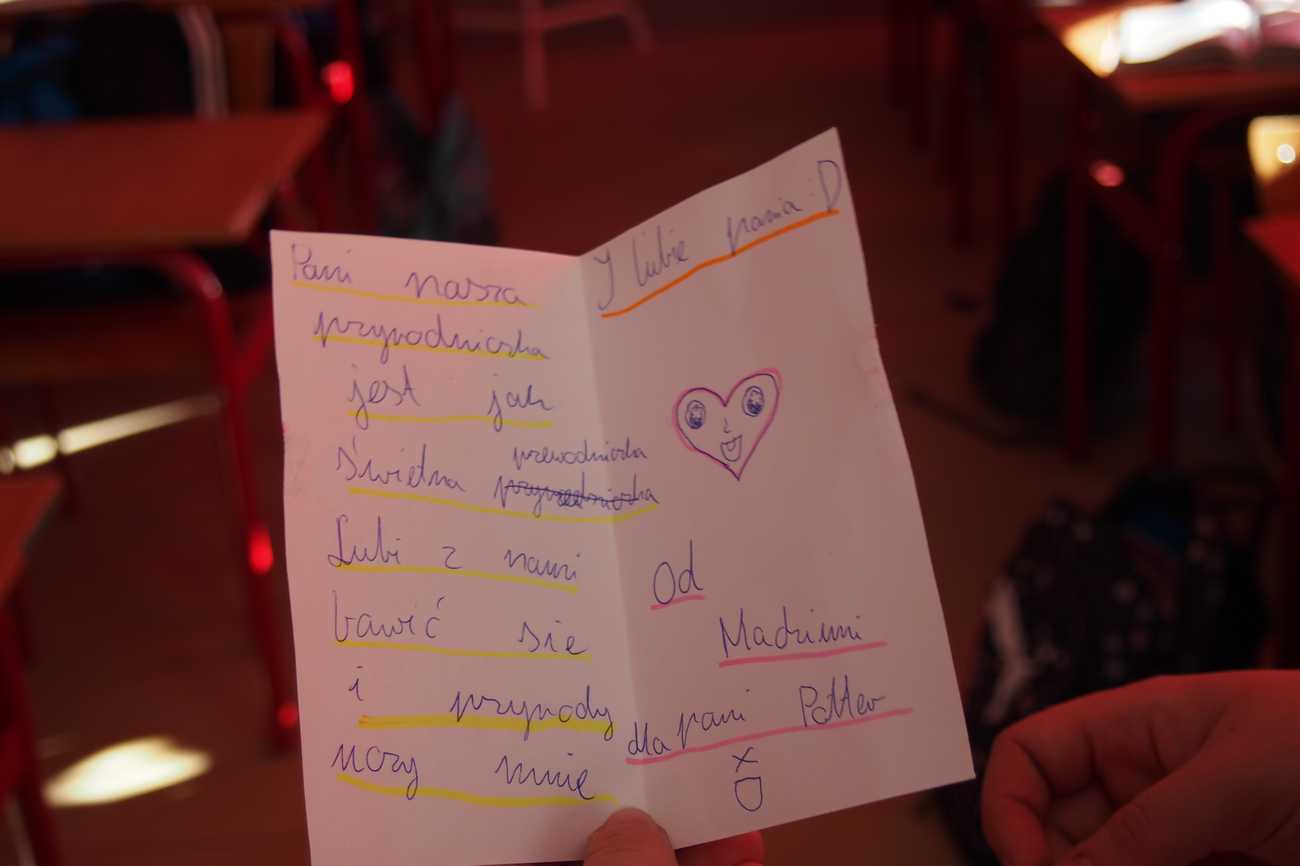 Pani nasza
przyrodniczka
jest jak
świetna przewodniczka
Lubi z nami
bawić się
i przyrody
uczy mnie
I lubie pania :D
Od
Madziuni
dla pani Potter
XD